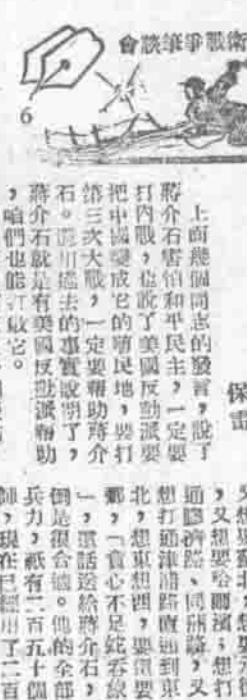 衛戰爭筆談會
6
保雷
上面幾個同志的發言，說了
蔣介石害怕和平民主，一定要
打內戰，也說了美國反動派要
把中國變成它的殖民地，要打
第三次大戰，一定要幫助蔣介
石。過去的事實說明了，
蔣介石就是有美國反動派幫助
，咱們也能打敗它。
，又想要哈爾濱；想打
通膠濟路、同蒲路，又
想打通津浦路直通到東
北，想東想西，要這要
鄉，「貪心不足蛇吞象
」，這話送給蔣介石，
倒是很合適。他的全部
兵力，祇有二百五十個
師，現在已經用了二百